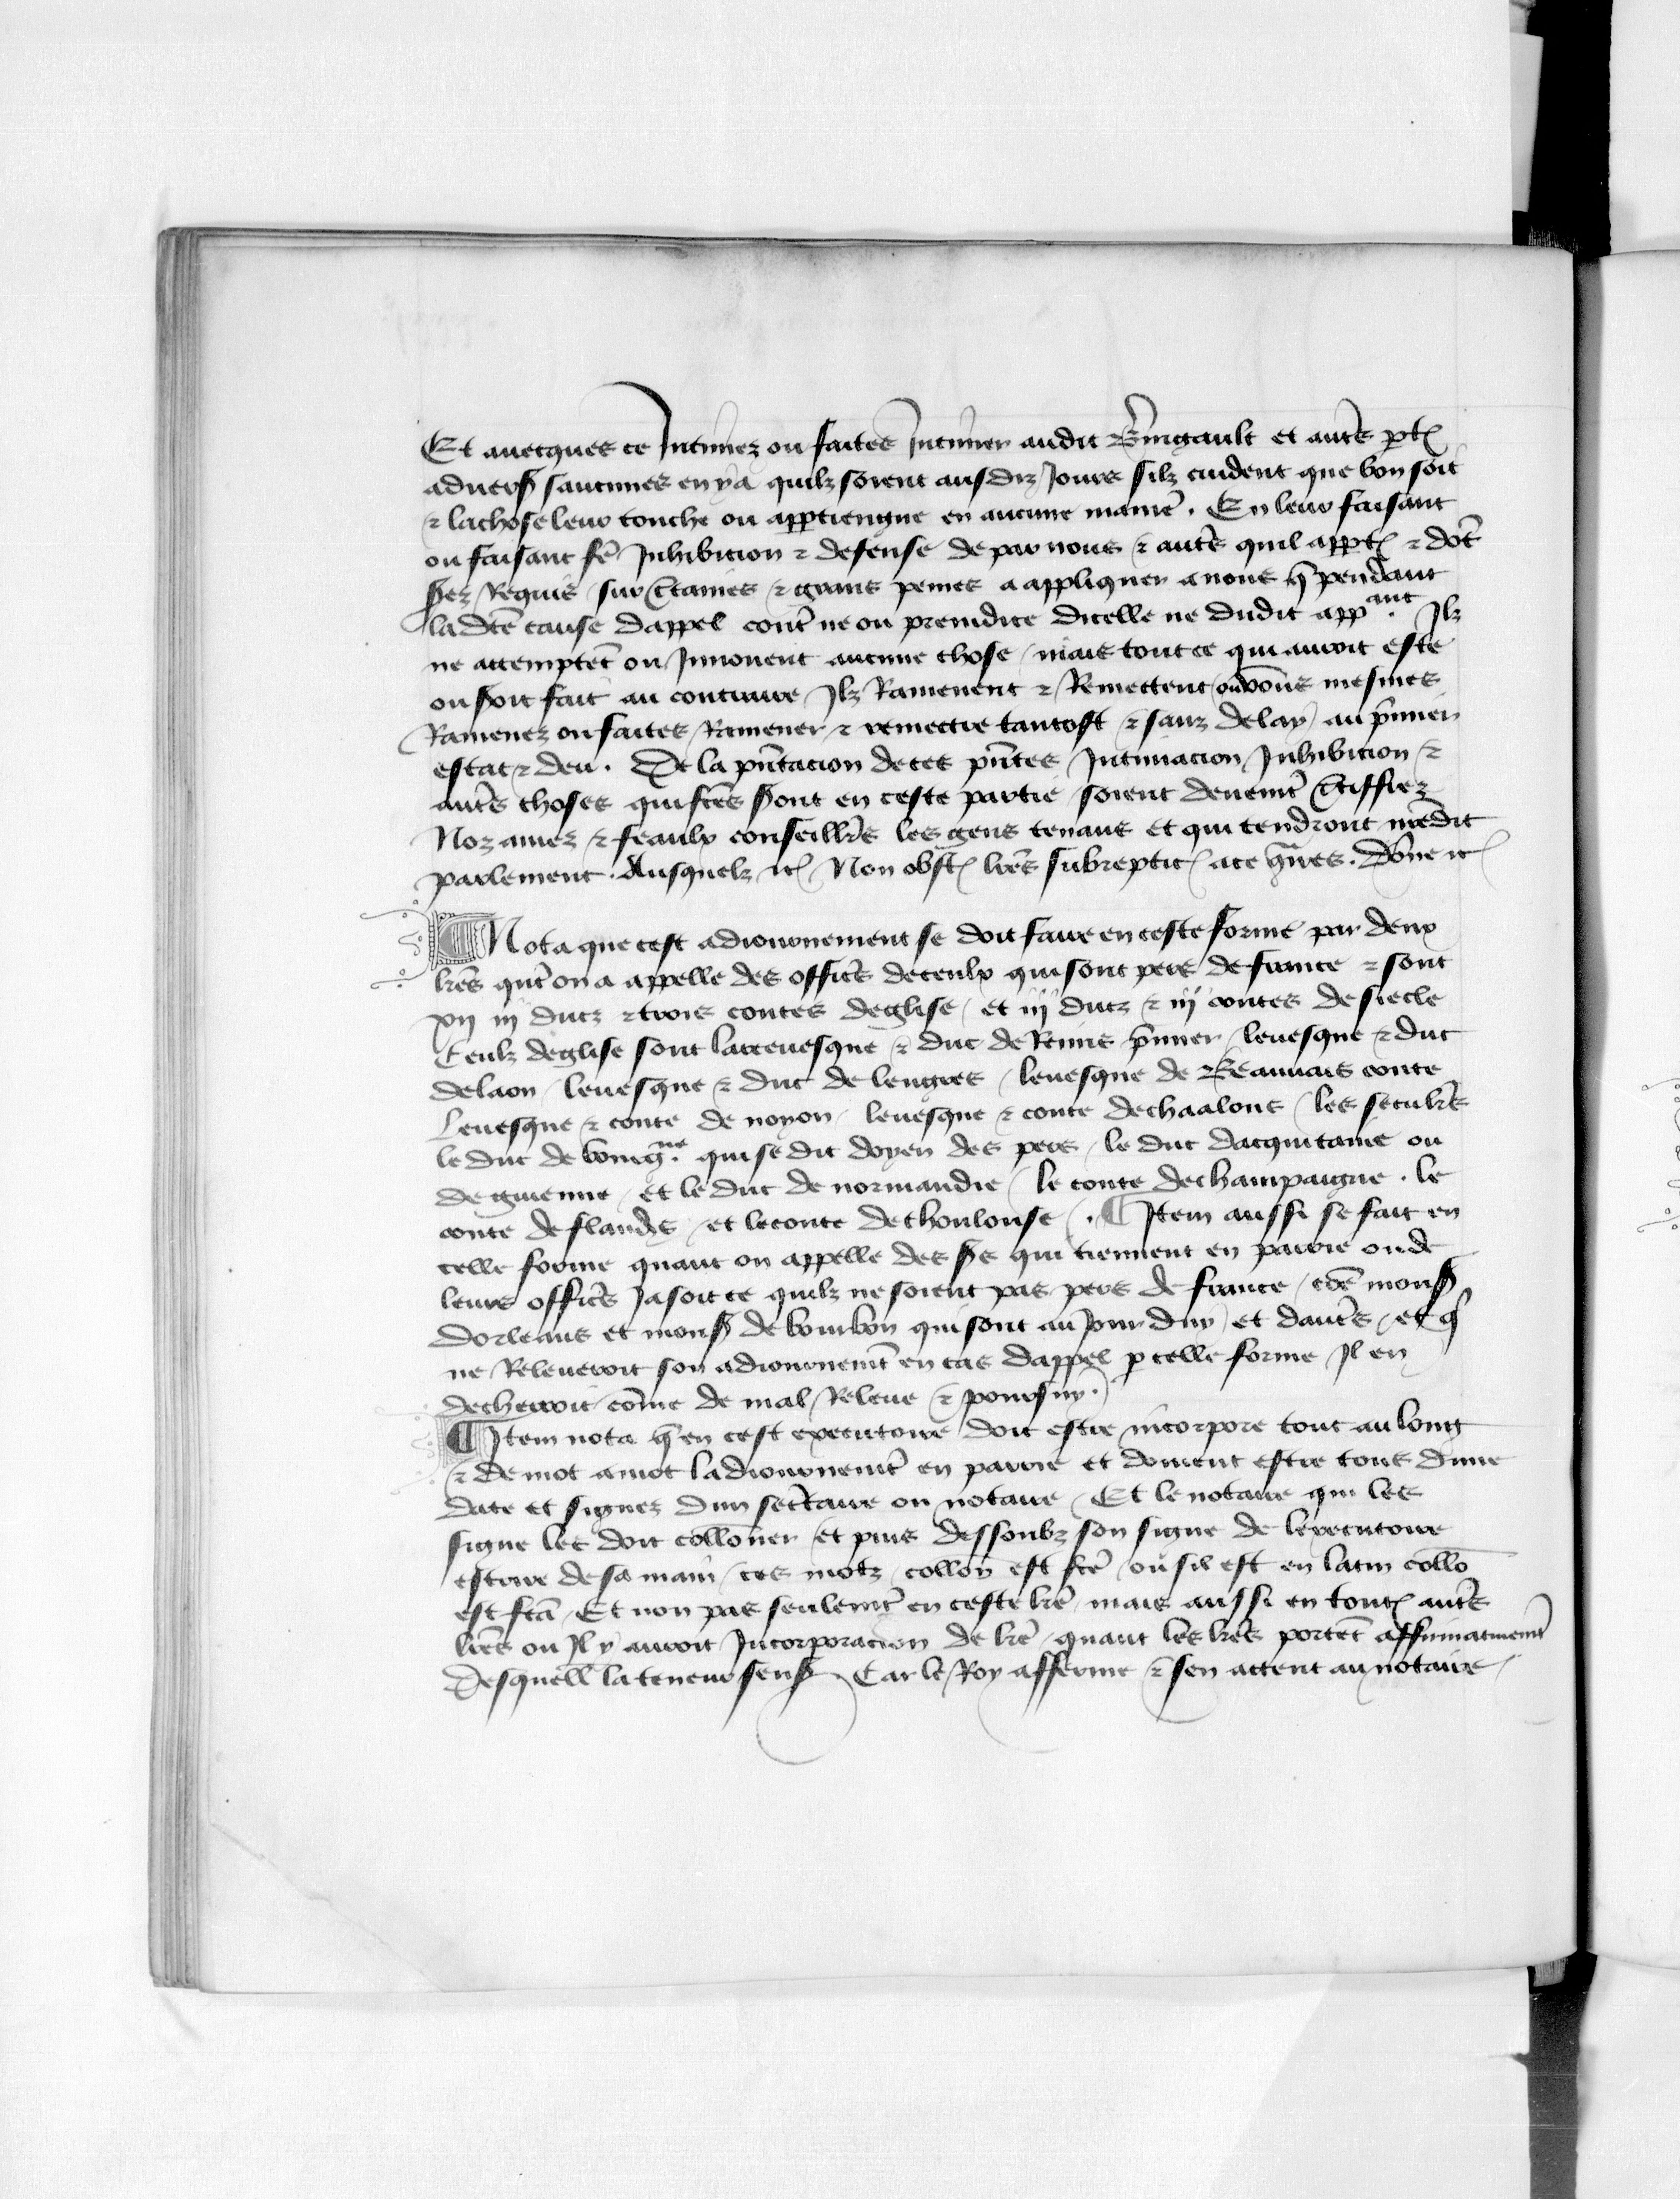 Et auecques ce Intimez ou faites Intimer audit Bringault et autẽs ptẽ
aduers saucunes en ya quilz soient ausdiz Jours silz cuident que bon soit
⁊ la chose leur touche ou appertiengne en aucune maniẽ. En leur faisant
ou faisant fẽ Inhibicion ⁊ defense de par nous ⁊ autẽs quil appt ⁊ dot
serez Requis sur certaines ⁊ grans peines a appliquer a nous q̃ pendant
ladcẽ cause dappel contẽ ne ou preiudice dicelle ne dudit appant. Ilz
ne attemptẽt ou Innouent aucune chose / mais tout ce qui auroit este
ou seroit fait au contraire Ilz Ramenent ⁊ Remettent ou vous mesmes
Ramenez ou faites Ramener ⁊ remectre tantost ⁊ sanz delay au pͥmier
estat ⁊ deu. Et la pñtacion de ces pñtes Intimacion Inhibicion ⁊
autẽs choses qui fcẽs seront en ceste partie soient deuemt̃ certiffiez
Noz amez ⁊ feaulx conseillrẽs les gens tenans et qui tendront nrẽdit
parlement. Ausquelz ⁊c̃ Non obst̃ lrẽs subreptic̃ a ce 9tͣires. Dõne ⁊c̃
¶ Nota que cest adiournement se doit faire en ceste forme par deux
lrẽs qñt on a appelle des officẽs de ceulx qui sont pers de france ⁊ sont
xij iij ducz ⁊ trois contes deglise / et iij ducz ⁊ iij contes de siecle
Ceulz deglise sont larceuesque ⁊ duc de Reims pͥmier / leuesque ⁊ duc
de laon / leuesque ⁊ duc de lengres / leuesque de Beauuais conte
Leuesque ⁊ conte de noyon / leuesque ⁊ conte de chaalons / les seculrẽs
le duc de bourgne. qui se dit doyen des pers / le duc dacquitaine ou
de guienne / et le duc de normandie / le conte de champaigne . le
conte de flandẽs / et le conte de thoulouse /. ¶ Item aussi se fait en
celle forme quant on appelle des srs qui tiennent en parrie ou de
leurs officẽs Ja soit ce quilz ne soient pas pers de france / cõe mons
dorleans et mons de bourbon qui sont au Jour duy / et dautẽs / et q̃
ne Releueroit son adiournemt̃ en cas dappel p celle forme Il en
decherroit cõme de mal Releue ⁊ poursuy.
¶ Item nota q̃ en cest executoire doit estre incorpore tout au long
⁊ de mot a mot ladiournemt̃ en parrie et doiuent estre tous dune
date et signez dun secrẽtaire ou notaire / Et le notaire qui les
signe les doit collõner / et puis dessoubz son signe de lexecutoire
escrire de sa main / ces motz / collon̄ est fcẽ / ou sil est en latin collõ
est fcã / Et non pas seulemt̃ en ceste lrẽ / mais aussi en tout̃ autẽs
lrẽs ou Il y auroit Incorporacion de lrẽ / quant lesd lrẽs portẽt affirmatiuemt̃
desquell̃ la teneur sens̃ / Car le Roy afferme ⁊ sen attent au notaire /